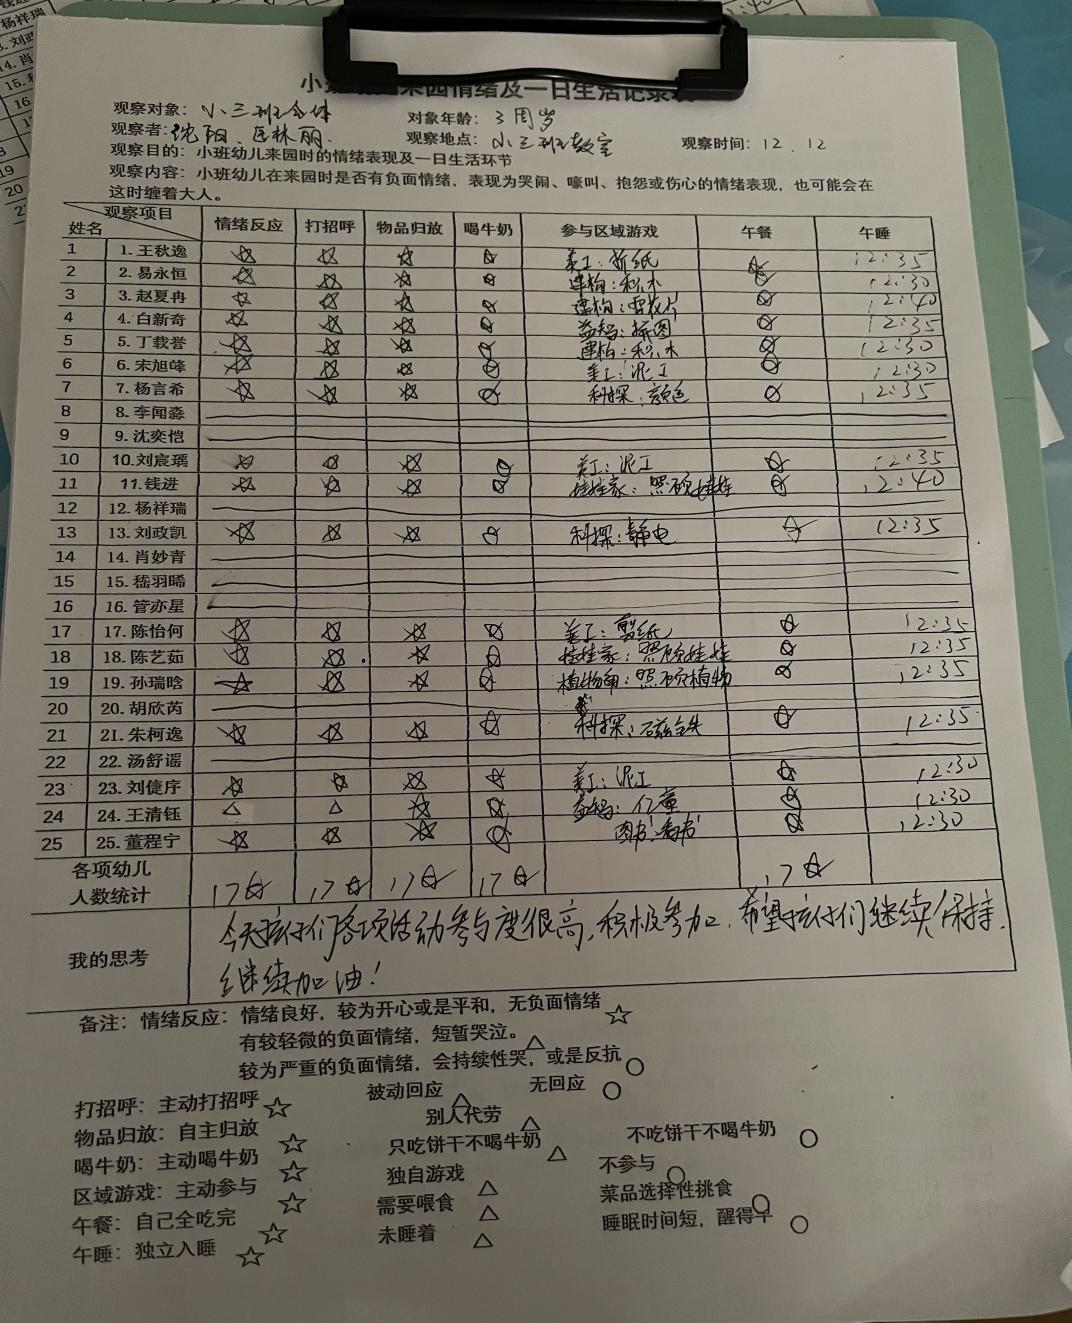 来园情绪及一日生活记录表
观察对象：小三班全体 对象年龄：3周岁
观察者：沈阳、匡林丽. 观察地点：小三班教室 观察时间：12.12
观察目的：小班幼儿来园时的情绪表现及一日生活环节
观察内容：小班幼儿在来园时是否有负面情绪，表现为哭闹、嚎叫、抱怨或伤心的情绪表现，也可能会在
这时缠着大人。
观察项目 姓名 情绪反应 打招呼 物品归放 喝牛奶 参与区域游戏 午餐 午睡
1 1.王秋逸 ☆ ☆ ☆ ☆ 美工：折纸 ☆ 12:35
2 2.易永恒 ☆ ☆ ☆ ☆ 建构：积木 ☆ 12:30
3 3.赵夏冉 ☆ ☆ ☆ ☆ 建构：雪花片 ☆ 12:40
4 4.白新奇 ☆ ☆ ☆ ☆ 益智：拼图 ☆ 12:35
5 5.丁载誉 ☆ ☆ ☆ ☆ 建构：积木 ☆ 12:30
6 6.宋旭峰 ☆ ☆ ☆ ☆ 美工：泥工 ☆ 12:30
7 7.杨言希 ☆ ☆ ☆ ☆ 科探：颜色 ☆ 12:35
8 8.李闻淼
9 9.沈奕恺
10 10.刘宸瑀 ☆ ☆ ☆ ☆ 美工：泥工 ☆ 12:35
11 11.钱进 ☆ ☆ ☆ ☆ 娃娃家：照顾娃娃 ☆ 12:40
12 12.杨祥瑞
13 13.刘政凯 ☆ ☆ ☆ ☆ 科探：静电 ☆ 12:35
14 14.肖妙青
15 15.嵇羽晞
16 16.管亦星
17 17.陈怡何 ☆ ☆ ☆ ☆ 美工：剪纸 ☆ 12:35
18 18.陈艺茹 ☆ ☆ ☆ ☆ 娃娃家：照顾娃娃 ☆ 12:35
19 19.孙瑞晗 ☆ ☆ ☆ ☆ 植物角：照顾植物 ☆ 12:35
20 20.胡欣芮
21 21.朱柯逸 ☆ ☆ ☆ ☆ 科探：磁铁 ☆ 12:35
22 22.汤舒谣
23 23.刘倢序 ☆ ☆ ☆ ☆ 美工：泥工 ☆ 12:30
24 24.王清钰 △ △ ☆ ☆ 益智：亿童 ☆ 12:30
25 25.董程宁 ☆ ☆ ☆ ☆ 图书：看书 ☆ 12:30
各项幼儿
人数统计 17☆ 17☆ 17☆ 17☆ 17☆
我的思考
今天孩子们各项活动参与度很高，积极参加.希望孩子们继续保持.
继续加油！
备注：情绪反应：情绪良好，较为开心或是平和，无负面情绪☆
有较轻微的负面情绪，短暂哭泣。△
较为严重的负面情绪，会持续性哭，或是反抗○
打招呼：主动打招呼☆ 被动回应△ 无回应○
物品归放：自主归放☆ 别人代劳△
喝牛奶：主动喝牛奶☆ 只吃饼干不喝牛奶△ 不吃饼干不喝牛奶○
区域游戏：主动参与☆ 独自游戏△ 不参与○
午餐：自己全吃完☆ 需要喂食△ 菜品选择性挑食○
午睡：独立入睡☆ 未睡着△ 睡眠时间短，醒得早○